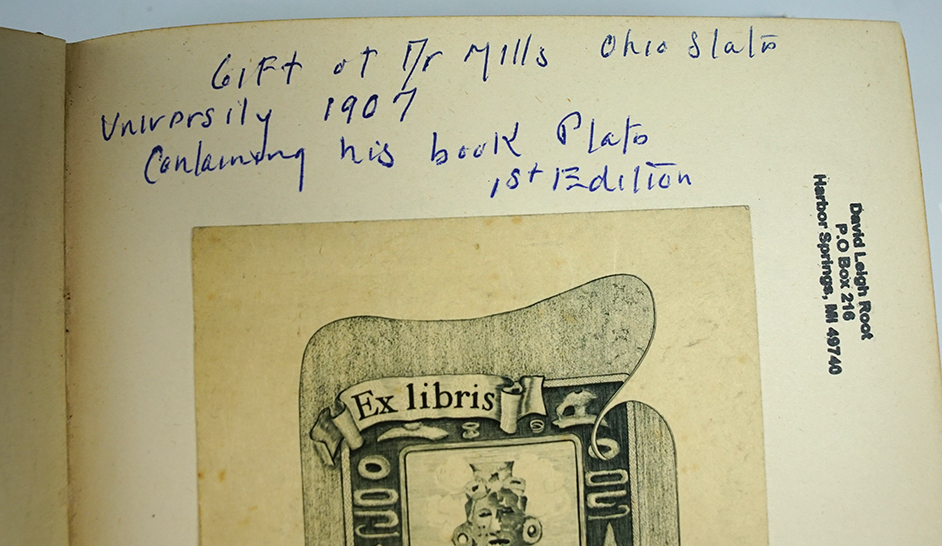 Gift of Dr Mills Ohio State
University 1907
Containing his book Plate
1st Edition
David Leigh Root
P.O Box 216
Harbor Springs, MI 49740
Ex libris